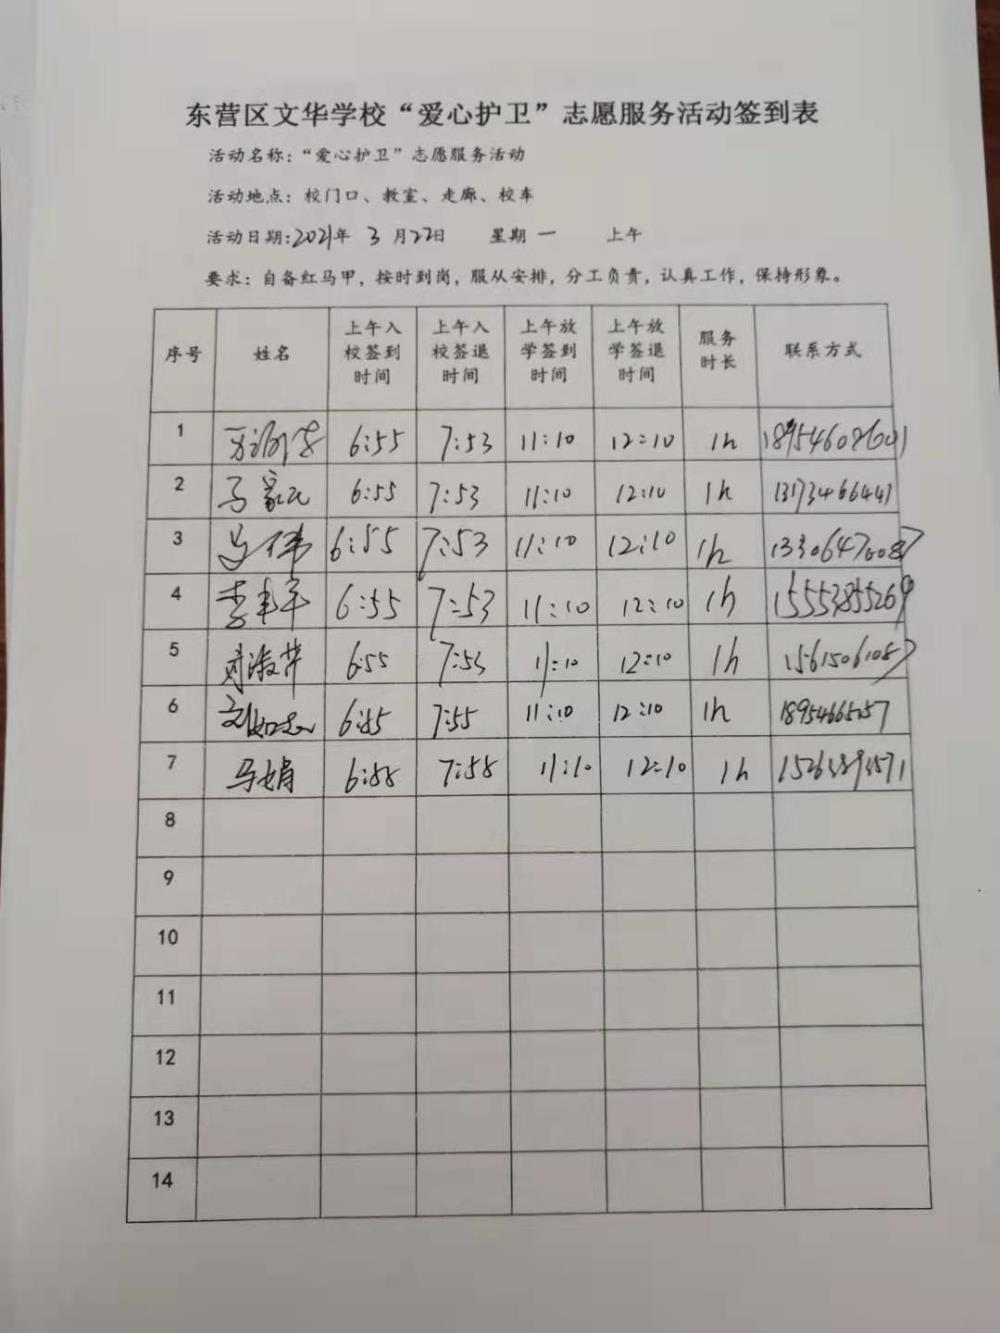 东营区文华学校“爱心护卫”志愿服务活动签到表
活动名称：“爱心护卫”志愿服务活动
活动地点：校门口、教室、走廊、校车
活动日期：2021年 3 月22日 星期 一 上午
要求：自备红马甲，按时到岗，服从安排，分工负责，认真工作，保持形象。
序号 姓名 上午入校签到时间 上午入校签退时间 上午放学签到时间 上午放学签退时间 服务时长 联系方式
1 6:55 7:53 11:10 12:10 1h
2 6:55 7:53 11:10 12:10 1h 13173466441
3 马伟 6:55 7:53 11:10 12:10 1h 13306470087
4 6:55 7:53 11:10 12:10 1h 15553855269
5 6:55 7:53 11:10 12:10 1h 15615061087
6 刘如志 6:55 7:55 11:10 12:10 1h
7 马娟 6:58 7:58 11:10 12:10 1h
8
9
10
11
12
13
14